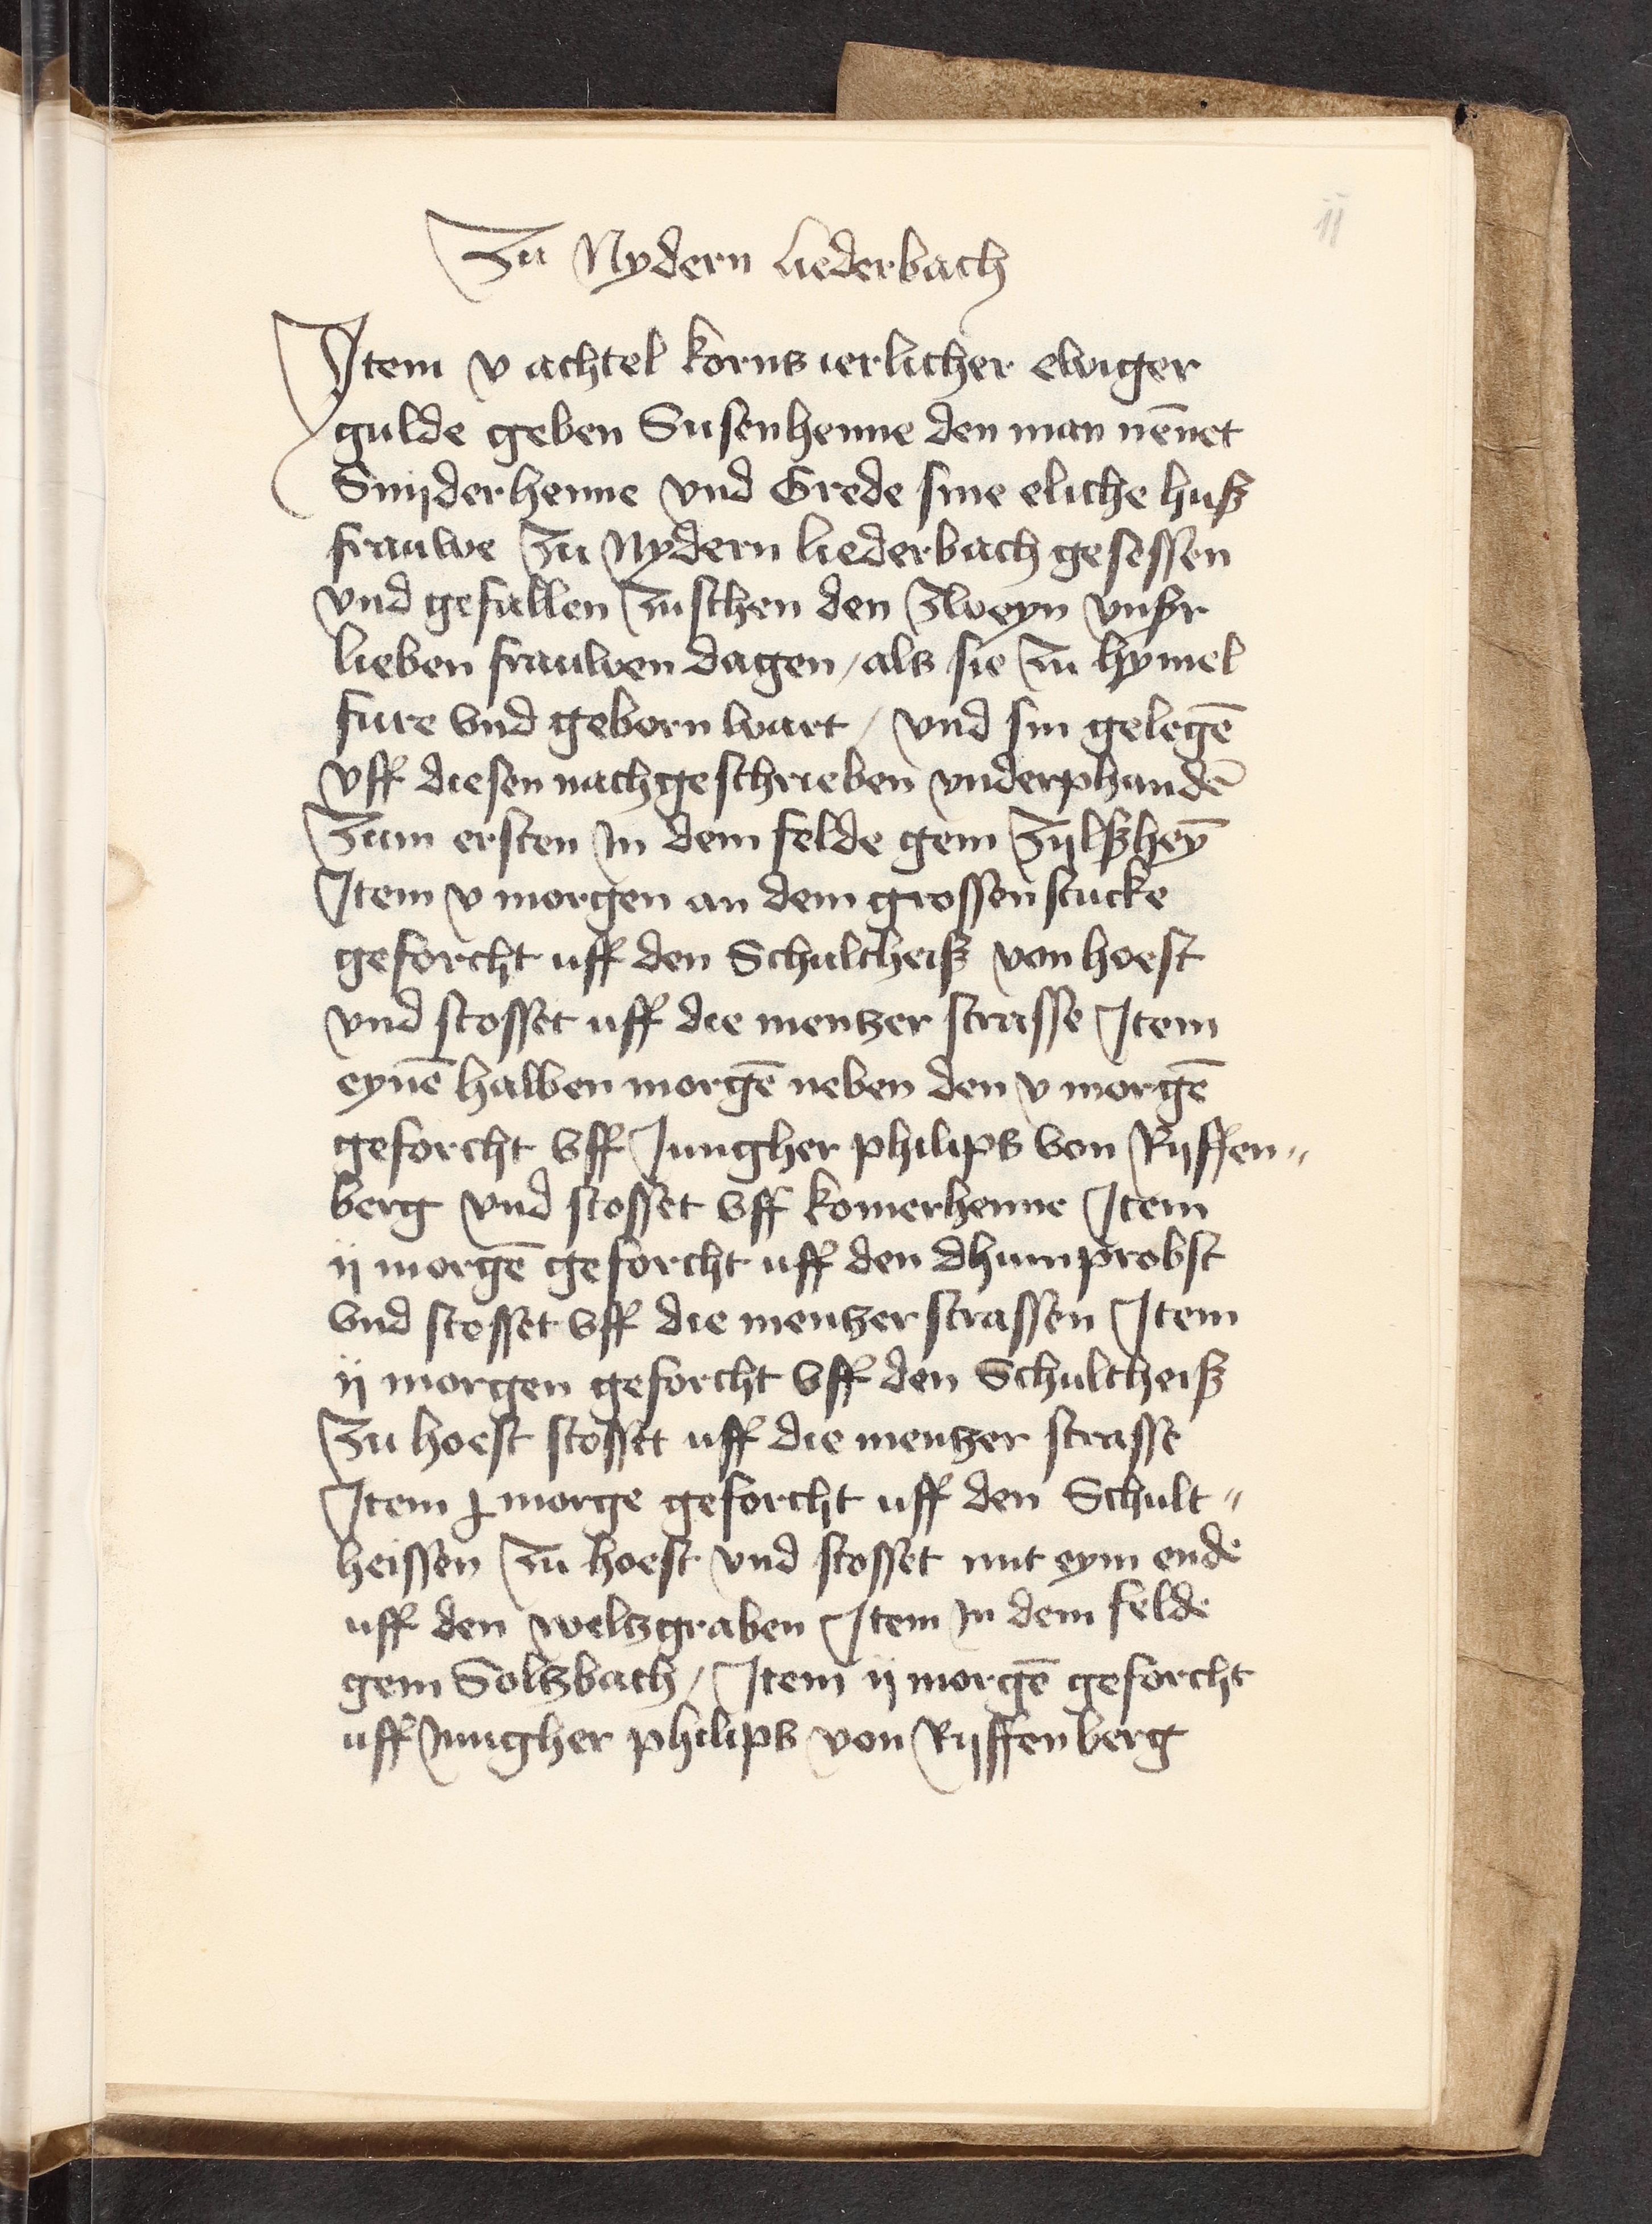 ij
Zu Nydern liederbach
Jtem v achtel korns ierlicher ewiger
gulde geben Susenhenne den man nēnet
Snijderhenne vnd Grede sine eliche huß
frauwe zu Nydern liederbach gesessen
vnd gefallen zuschen den zweyn vnßr
lieben frauwen dagen / als sie zu hymel
fure vnd geborn wart / vnd sin gelegē
vff diesen nachgeschrieben vnderphandē
Zum ersten in dem felde gem Zijlßheȳ
Jtem v morgen an dem grossen stucke
geforcht uff den Schultheiß von hoest
vnd stosset uff die mentzer strasse Jtem
eynē halben morgē neben den v morgē
geforcht vff Jungher philips von Rijffen〃
berg vnd stosset vff komerhenne Jtem
ij morgē geforcht uff den dhumprobst
vnd stosset vff die mentzer strassen Jtem
ij morgen geforcht vff den Schultheiß
Zu hoest stosset uff die mentzer strasse
Jtem j morge geforcht uff den Schult〃
heissen zu hoest vnd stosset mit eym ende
uff den weltzgraben Jtem in dem felde
gem Soltzbach / Jtem ij morgē geforcht
uff Jungher philips von Rijffenberg